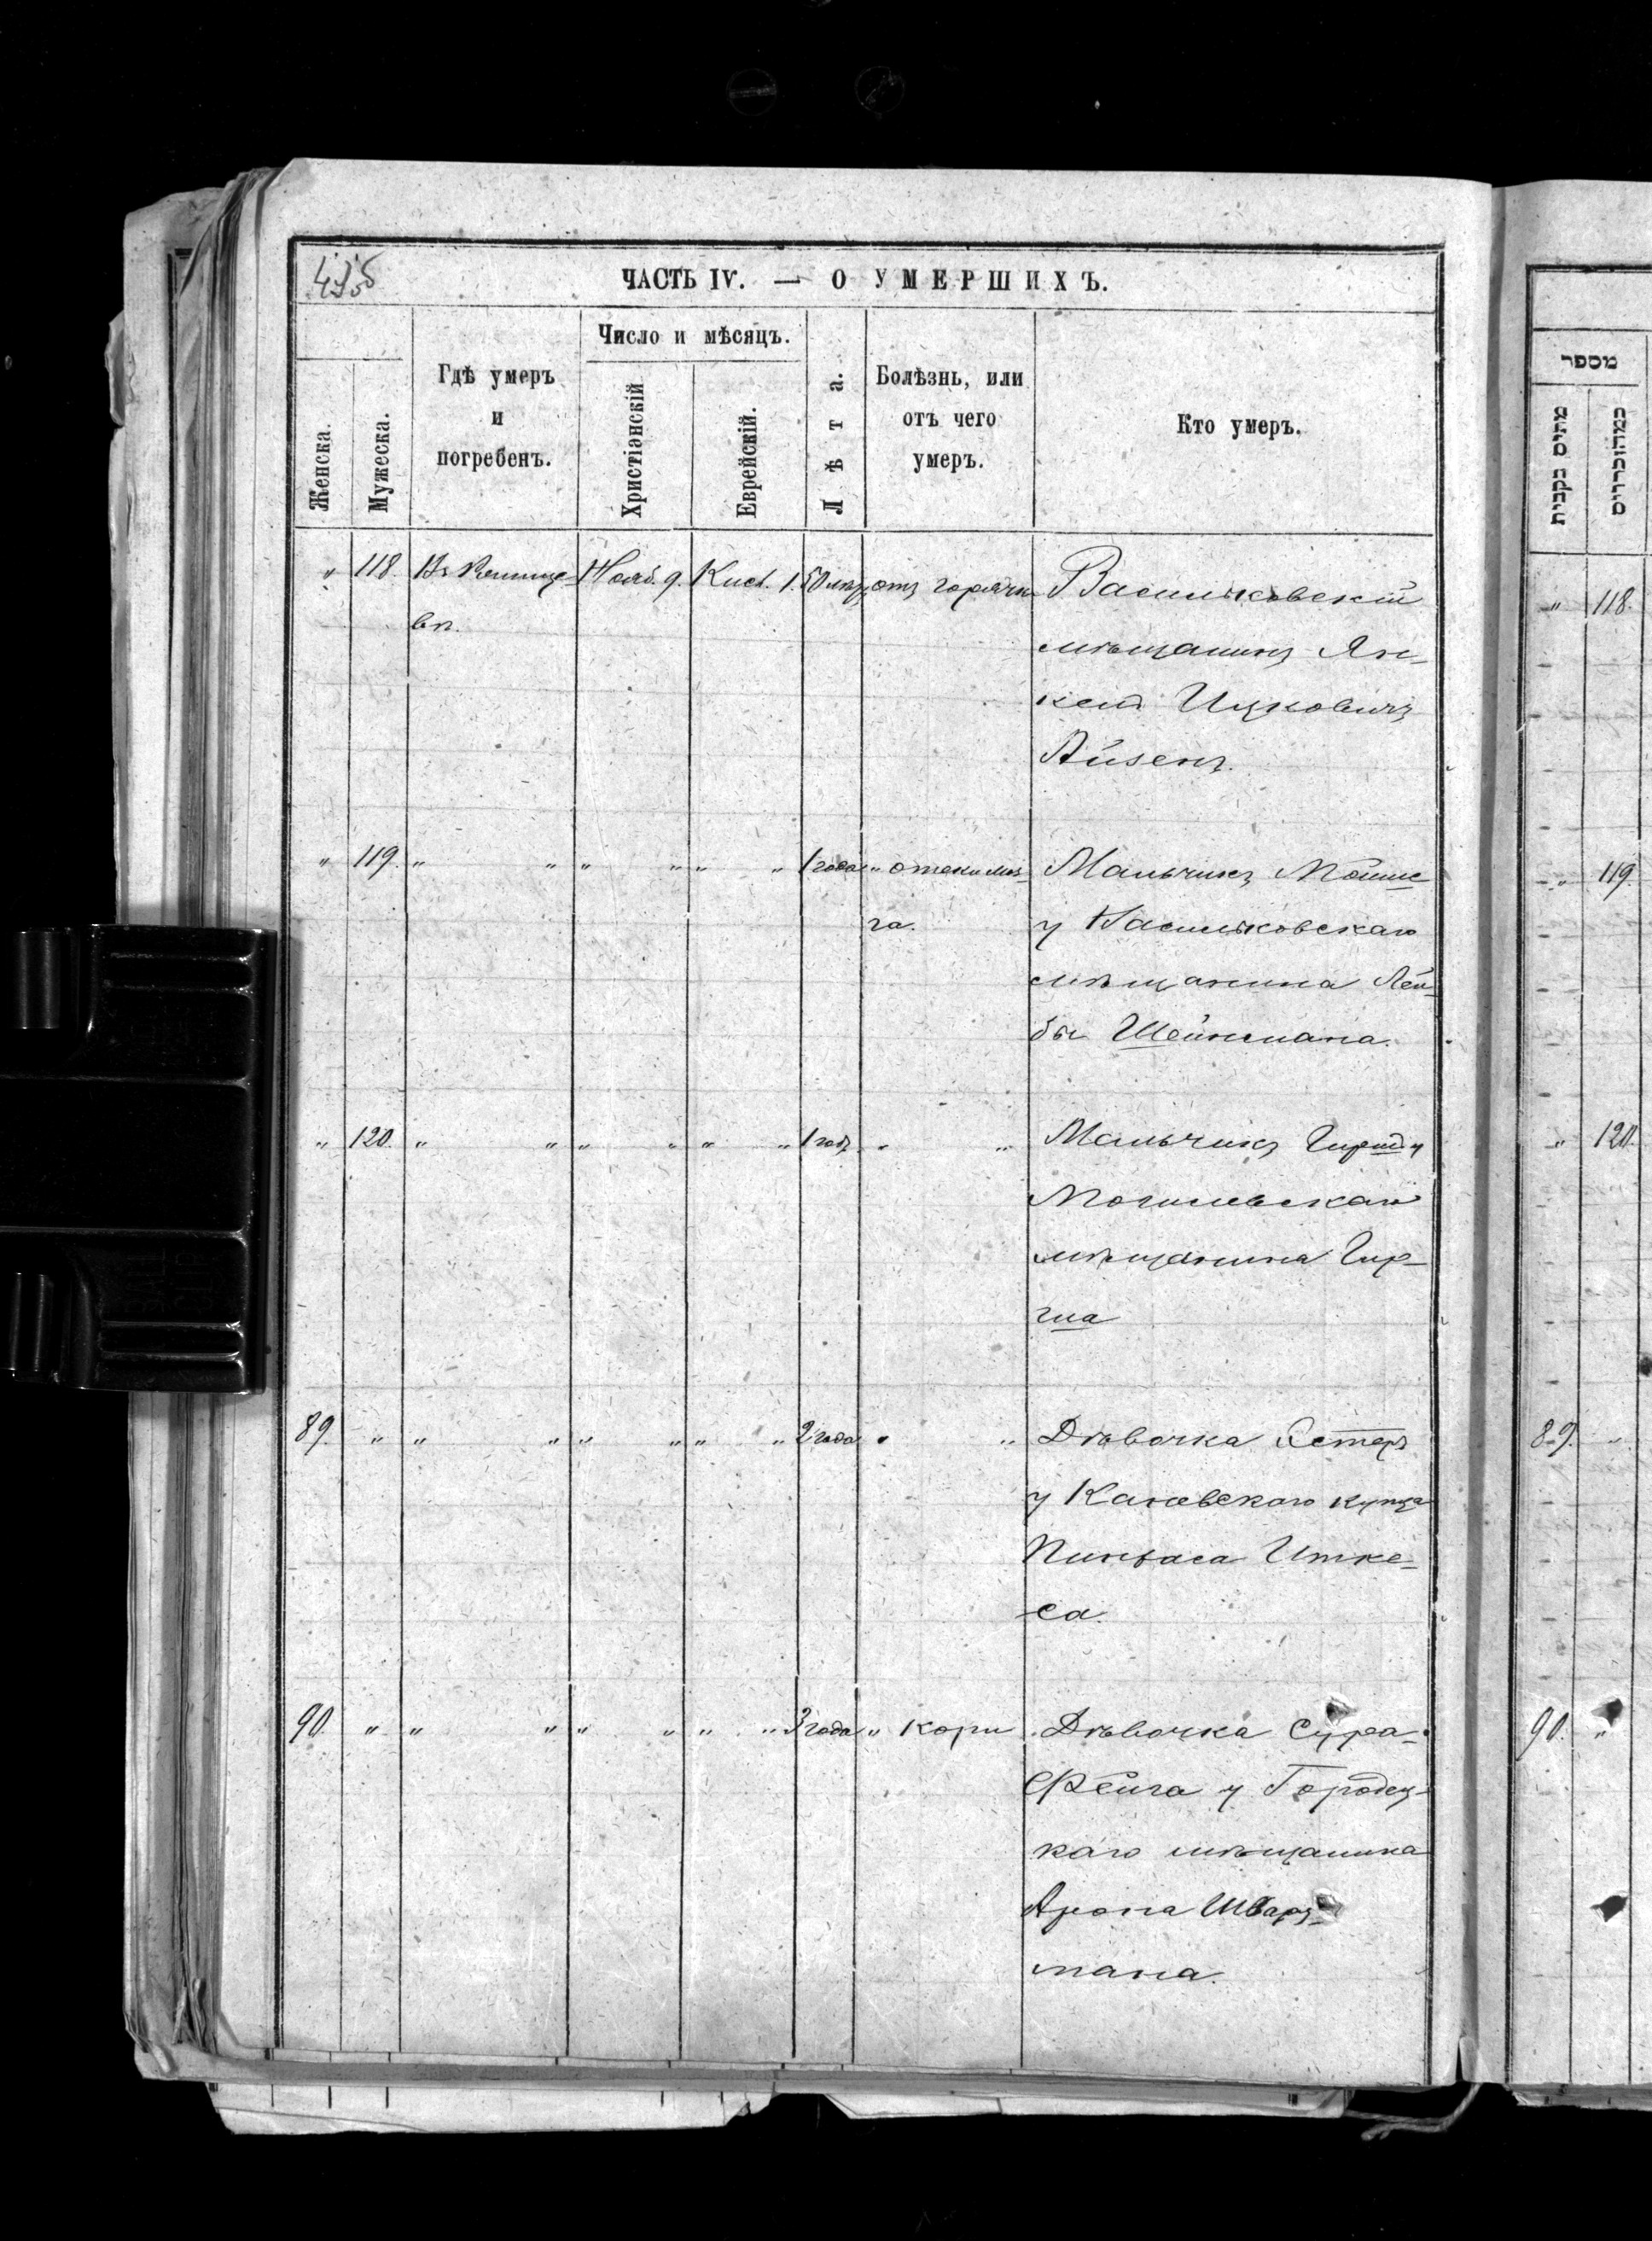 ЧАСТЬ IV. — О УМЕРШИХЪ.
Женска.
Мужеска.
Гдѣ умеръ
и
погребенъ.
Число и мѣсяцъ.
Христіанскій
Еврейскій.
Лѣта.
Болѣзнь, или
отъ чего
умеръ.
Кто умеръ.
" 118. Въ Нояб. 9. Кисл. 1. 50 лѣтъ отъ горячк. Васильковскій
мѣщанинъ Ян-
кель Ицковичъ
Айзенъ.
" 119. " " " " " " 1 года " отеки моз- Мальчикъ Мойше
га. у Васильковскаго
мѣщанина Лей-
бы Шейнмана.
" 120. " " " " " " 1 годъ " " Мальчикъ Гиршъ у
Могилевскаго
мѣщанина Гир-
ша
89. " " " " " " " 2 года " " Дѣвочка Естеръ
у Каневскаго купца
Пинхаса Итке-
са.
90. " " " " " " " 3 года " кори Дѣвочка Сура-
Фейга у Городец-
каго мѣщанина
Арона Шварц-
мана.
מספר
מתים נקבות
כמהזכרים
" 118.
" 119.
" 120.
89. "
90. "